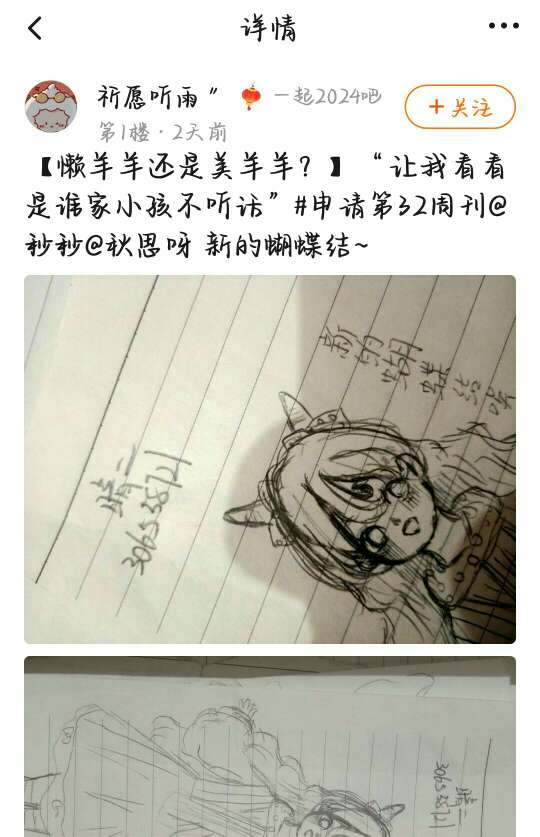 详情
祈愿听雨〃 一起2024吧
+关注
第1楼·2天前
【懒羊羊还是美羊羊？】“让我看看
是谁家小孩不听话”#申请第32周刊@
秒秒@秋思呀 新的蝴蝶结~
新的
蝴蝶结呀
晴二
306538721
晴二
306538721